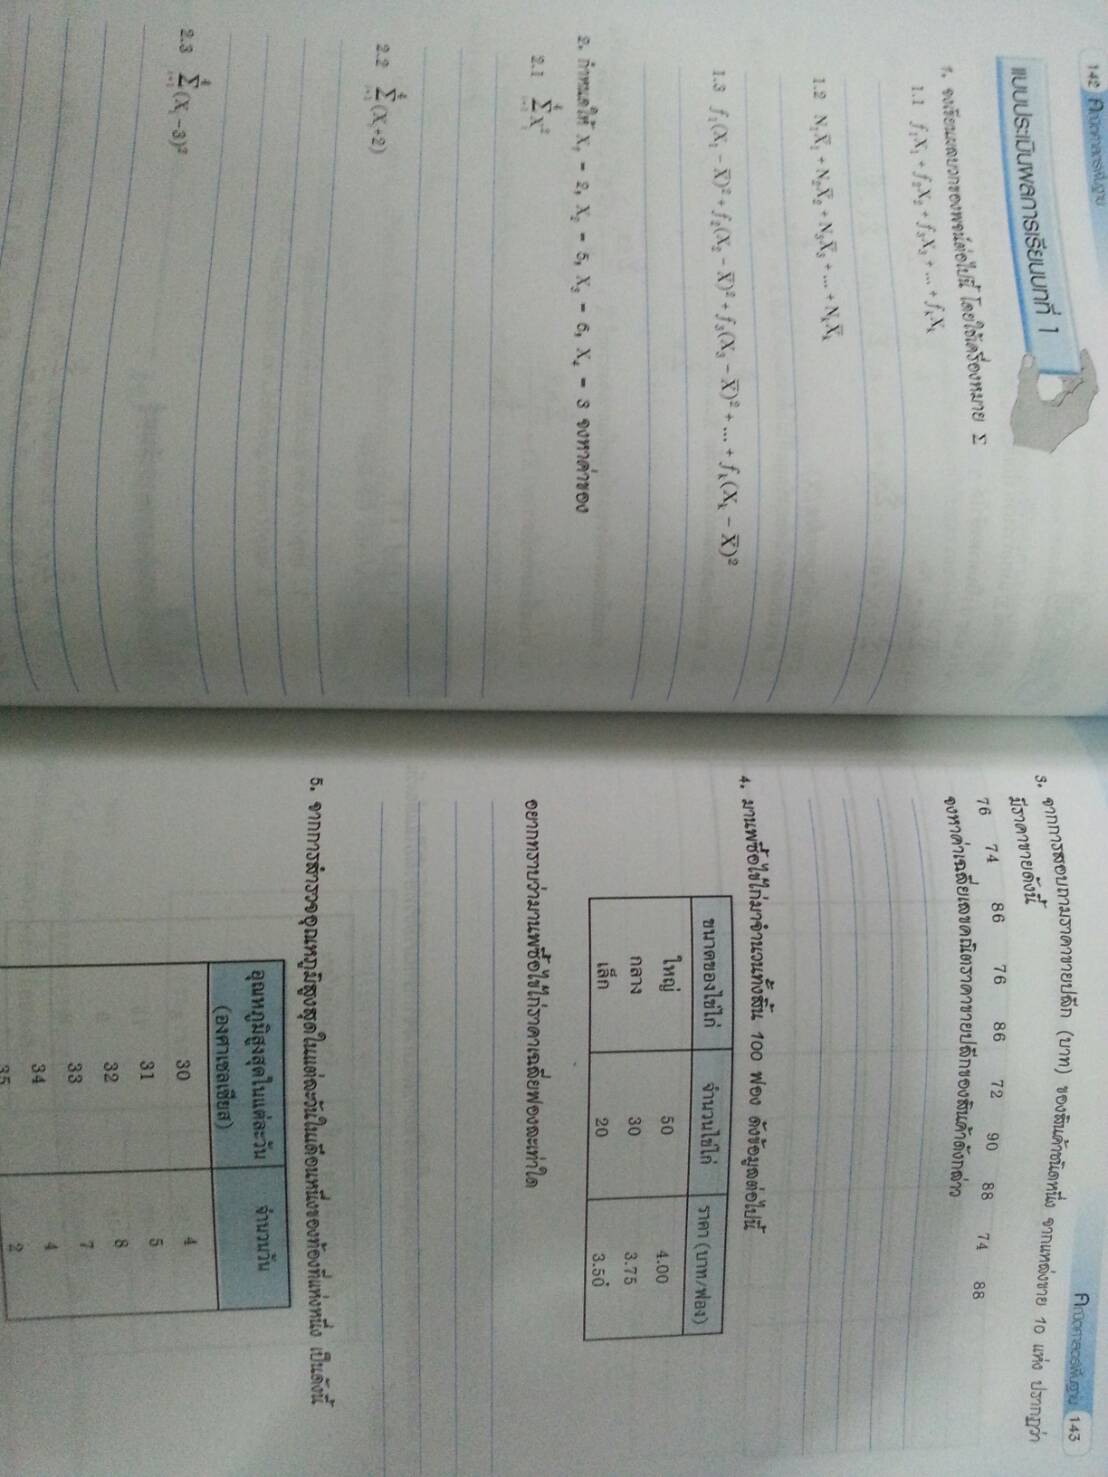 142 คณิตศาสตร์พื้นฐาน
แบบประเมินผลการเรียนบทที่ 1
1. จงเขียนผลบวกของพจน์ต่อไปนี้ โดยใช้เครื่องหมาย Σ
1.1 f₁X₁ + f₂X₂ + f₃X₃ + ... + fₖXₖ
1.2 N₁X̄₁ + N₂X̄₂ + N₃X̄₃ + ... + NₖX̄ₖ
1.3 f₁(X₁ − X̄)² + f₂(X₂ − X̄)² + f₃(X₃ − X̄)² + ... + fₖ(Xₖ − X̄)²
2. กำหนดให้ X₁ = 2, X₂ = 5, X₃ = 6, X₄ = 3 จงหาค่าของ
2.1 4 Σ i=1 Xᵢ²
2.2 4 Σ i=1 (Xᵢ+2)
2.3 4 Σ i=1 (Xᵢ−3)²
คณิตศาสตร์พื้นฐาน 143
3. จากการสอบถามราคาขายปลีก (บาท) ของสินค้าชนิดหนึ่ง จากแหล่งขาย 10 แห่ง ปรากฏว่า
มีราคาขายดังนี้
76 74 86 76 86 72 90 88 74 88
จงหาค่าเฉลี่ยเลขคณิตราคาขายปลีกของสินค้าดังกล่าว
4. มานพซื้อไข่ไก่มาจำนวนทั้งสิ้น 100 ฟอง ดังข้อมูลต่อไปนี้
ขนาดของไข่ไก่ จำนวนไข่ไก่ ราคา (บาท/ฟอง)
ใหญ่ 50 4.00
กลาง 30 3.75
เล็ก 20 3.50
อยากทราบว่ามานพซื้อไข่ไก่ราคาเฉลี่ยฟองละเท่าใด
5. จากการสำรวจอุณหภูมิสูงสุดในแต่ละวันในเดือนหนึ่งของท้องที่แห่งหนึ่ง เป็นดังนี้
อุณหภูมิสูงสุดในแต่ละวัน จำนวนวัน
(องศาเซลเซียส)
30 4
31 5
32 8
33 7
34 4
35 2